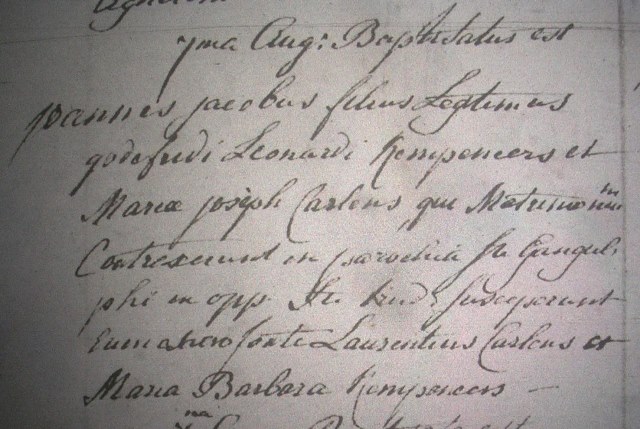 7ma Aug: Baptisatus est
Joannes jacobus filius Legtimus
godefridi Leonardi Kempeneers et
Mariæ joseph Carlens qui Matrimonium
Contraxerunt in parochia Sti Gangul:
phi in opp Sti Trud: susceperunt
Eum a sacro fonte Laurentius Carlens et
Maria Barbara Kempeneers —